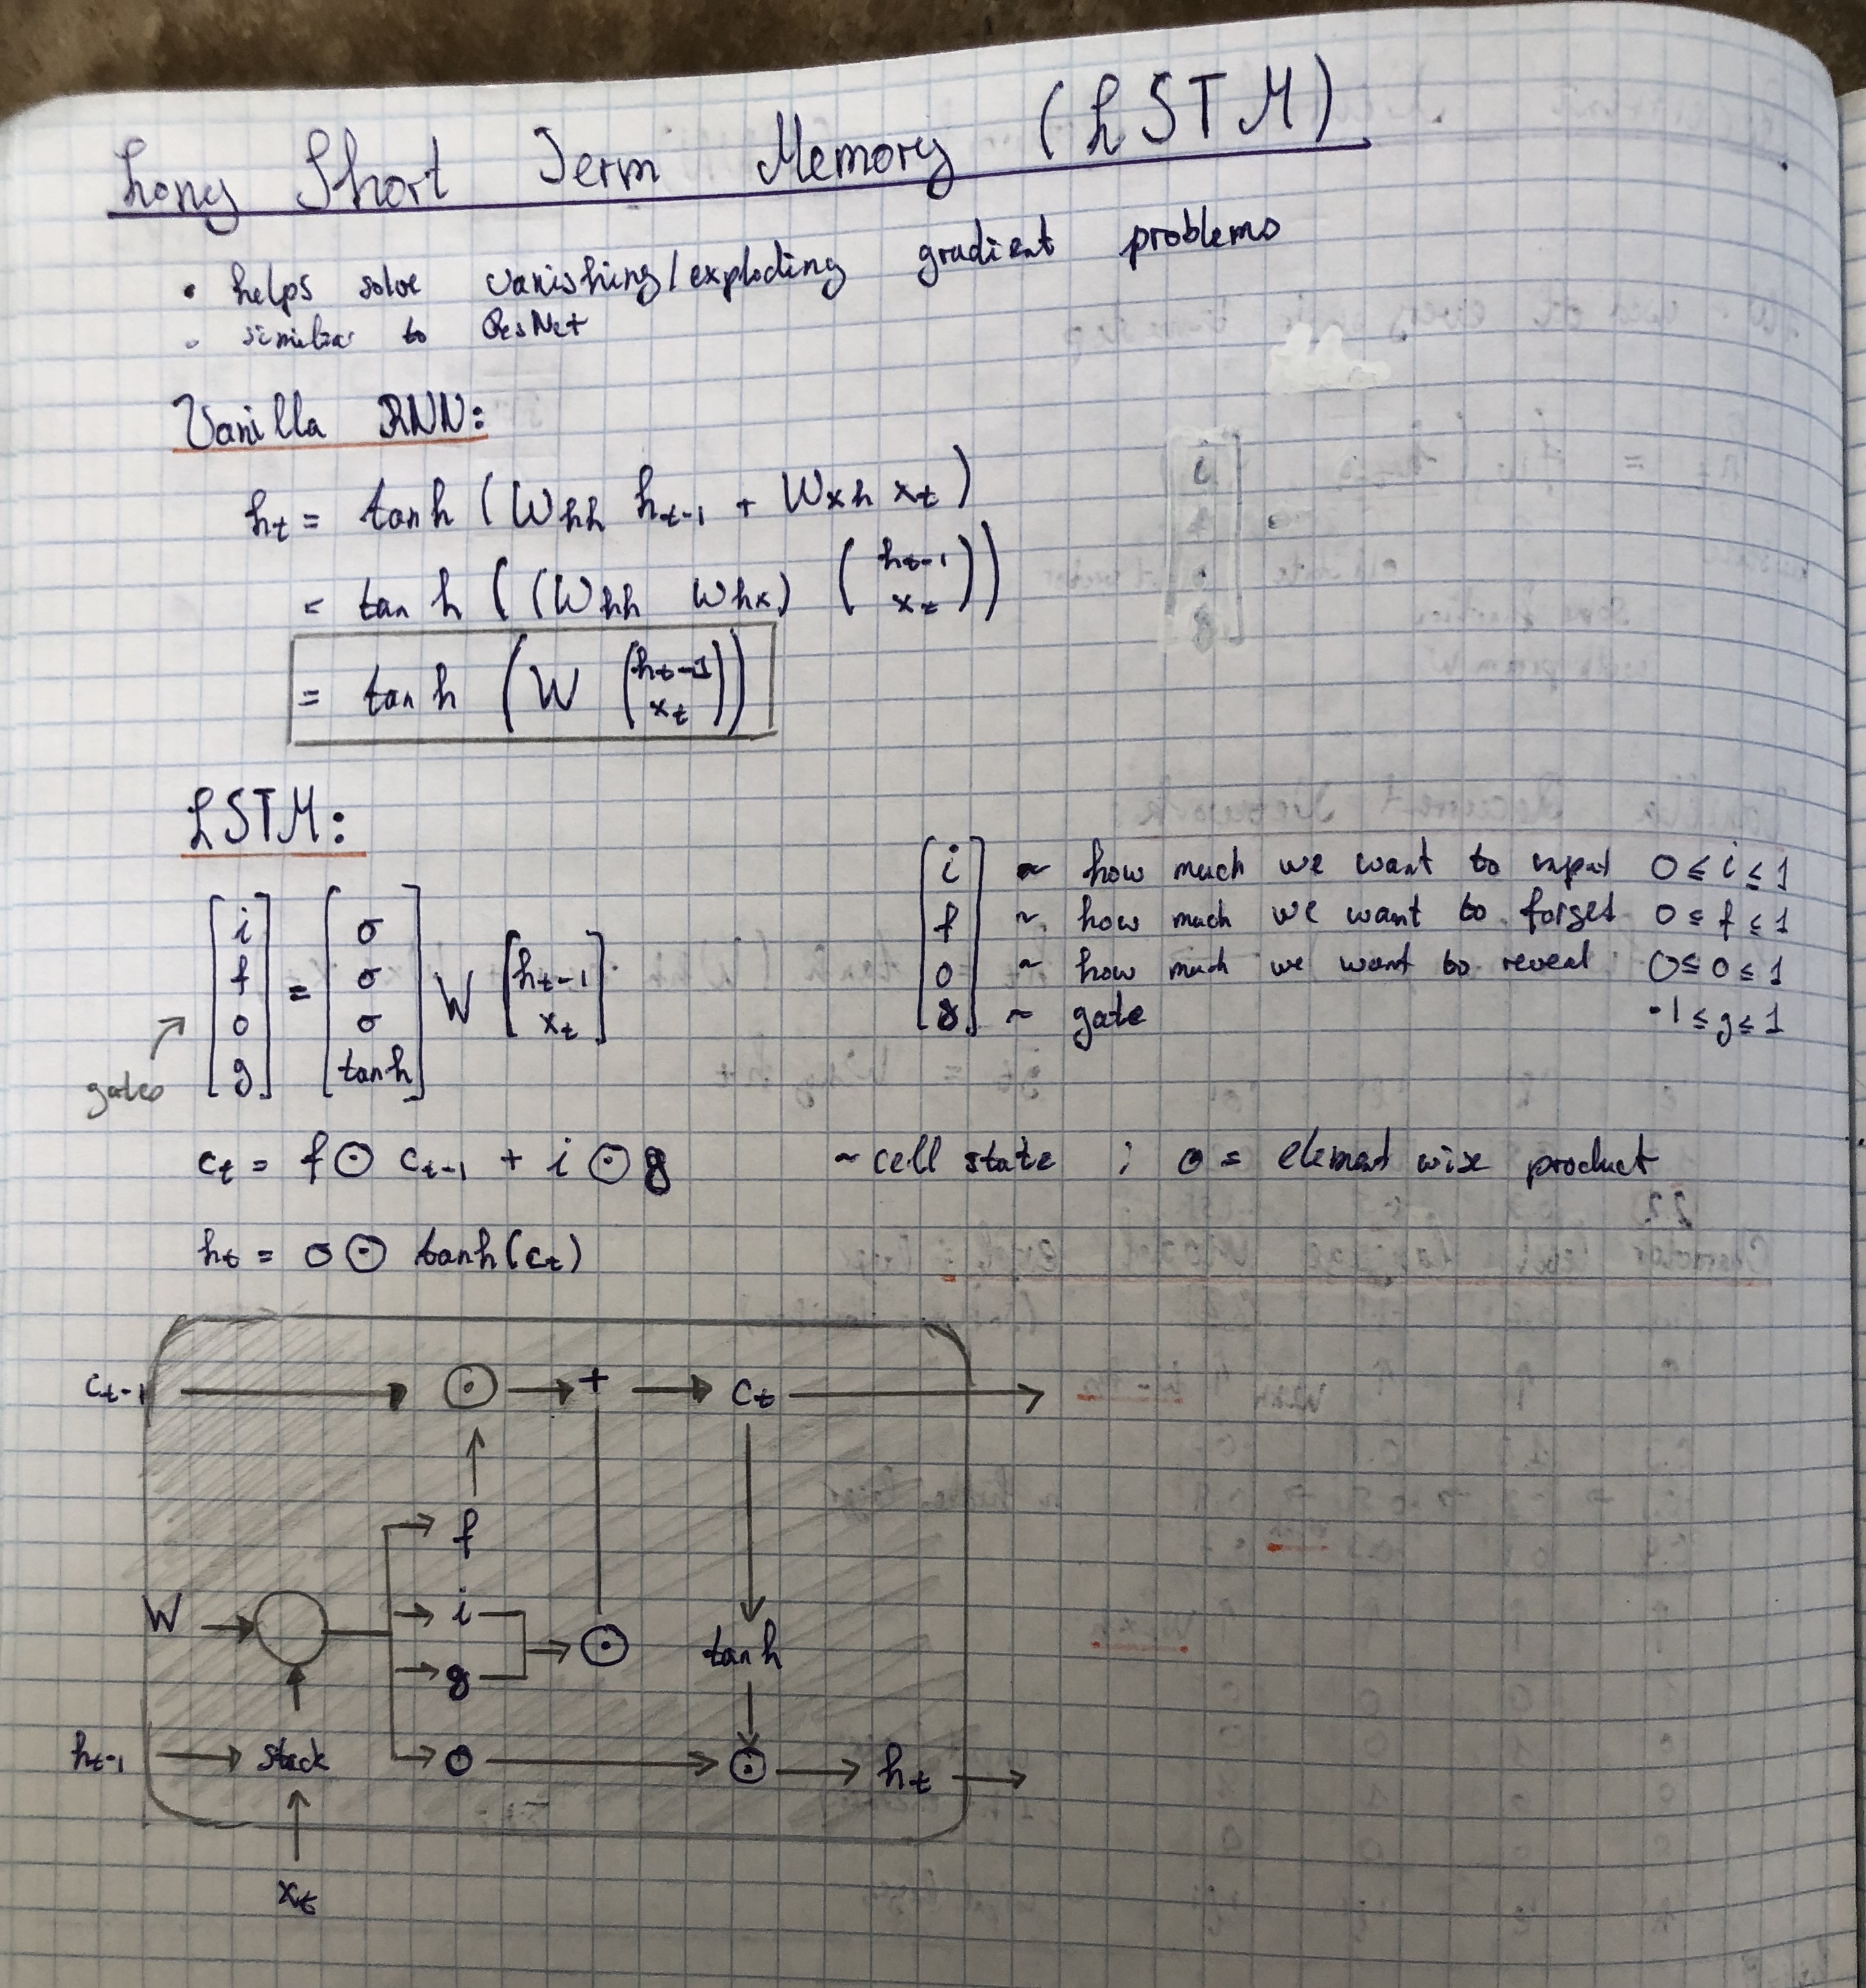 Long Short Term Memory (LSTM)
• helps solve vanishing/exploding gradient problems
• similar to ResNet
Vanilla RNN:
h_t = tanh (W_hh h_t-1 + W_xh x_t)
= tanh ((W_hh W_hx) (h_t-1 x_t))
= tanh (W (h_t-1 x_t))
LSTM:
[i f o g] = [σ σ σ tanh] W [h_t-1 x_t]
gates
i ~ how much we want to input 0 ≤ i ≤ 1
f ~ how much we want to forget 0 ≤ f ≤ 1
o ~ how much we want to reveal 0 ≤ o ≤ 1
g ~ gate -1 ≤ g ≤ 1
c_t = f ⊙ c_t-1 + i ⊙ g ~ cell state ; ⊙ = element wise product
h_t = o ⊙ tanh(c_t)
c_t-1 ⊙ + c_t
f
W i
g ⊙ tanh
h_t-1 stack o ⊙ h_t
x_t